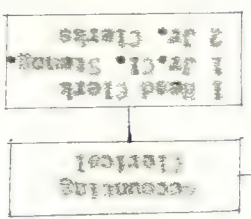 Accounting
(Clerical)
1 Head Clerk
1 Jr. Cl.
2 Jr. Clerks